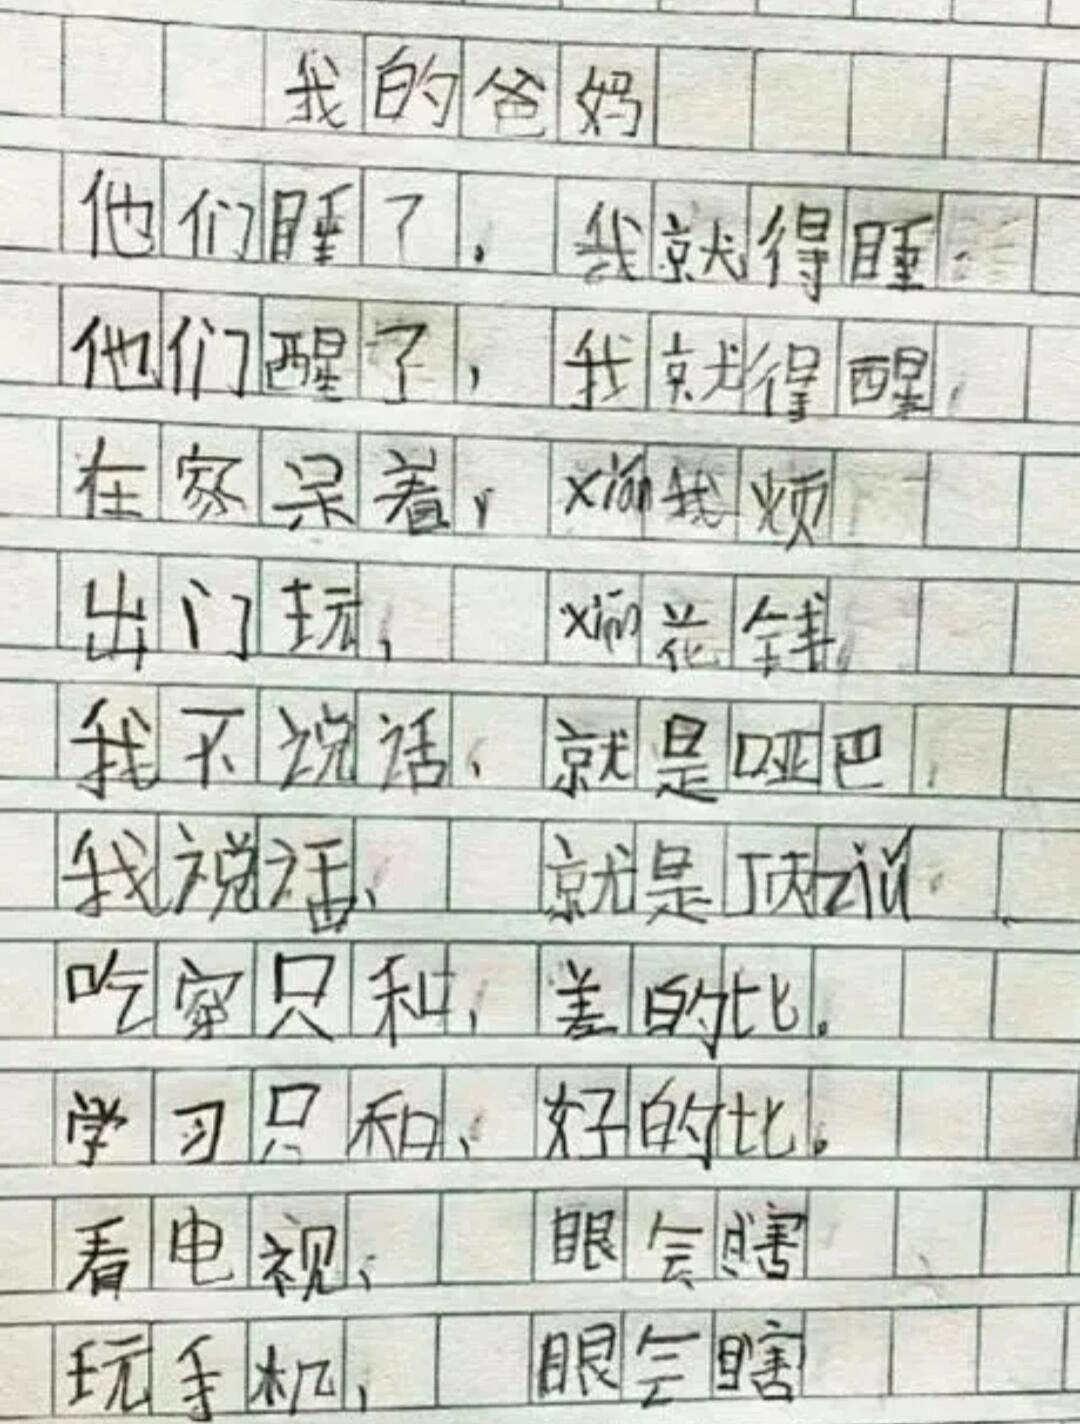 我的爸妈
他们睡了，我就得睡。
他们醒了，我就得醒，
在家呆着，xián我烦
出门玩，xián花钱，
我不说话、就是哑巴，
我说话、就是顶zuǐ。
吃穿只和，差的比。
学习只和、好的比。
看电视、眼会瞎
玩手机，眼会瞎